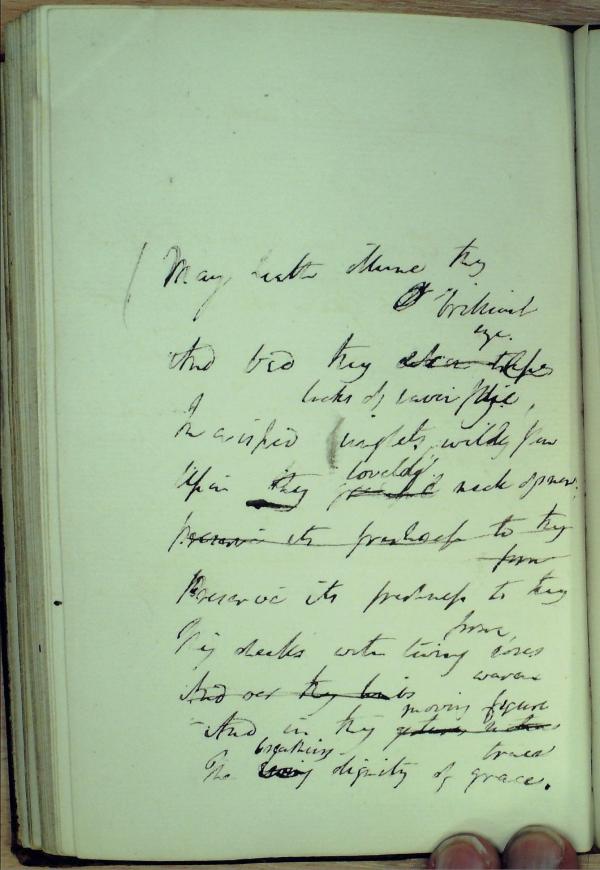 May health illume thy
brilliant
eye.
And bid thy
locks of raven
In crisped ringlets, wildly flow
Upon thy lovely neck of snow.
Preserve its freshness to thy
form
Preserve its freshness to thy
form,
Thy cheeks with living roses
warm
And oer thy limbs
moving figure
And in thy
trace
breathing
The living dignity of grace.